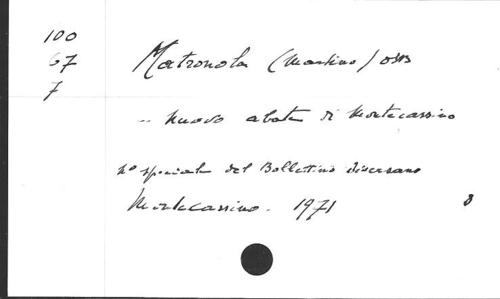 100
67
7
Matronola (Martino) OSB
.. nuovo abate di Montecassino
n° speciale del Bollettino diocesano
Montecassino. 1971
8